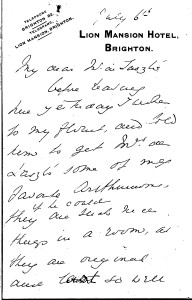 TELEPHONE
BRIGHTON
TELEGRAMS
LION MANSION, BRIGHTON.
July 6th
LION MANSION HOTEL,
BRIGHTON.
My dear
before leaving
here yesterday I
to my florist, and told
him to get Mrs
some of my
favorite
if he could
they are such nice
things in a room, as
they are original
and so well